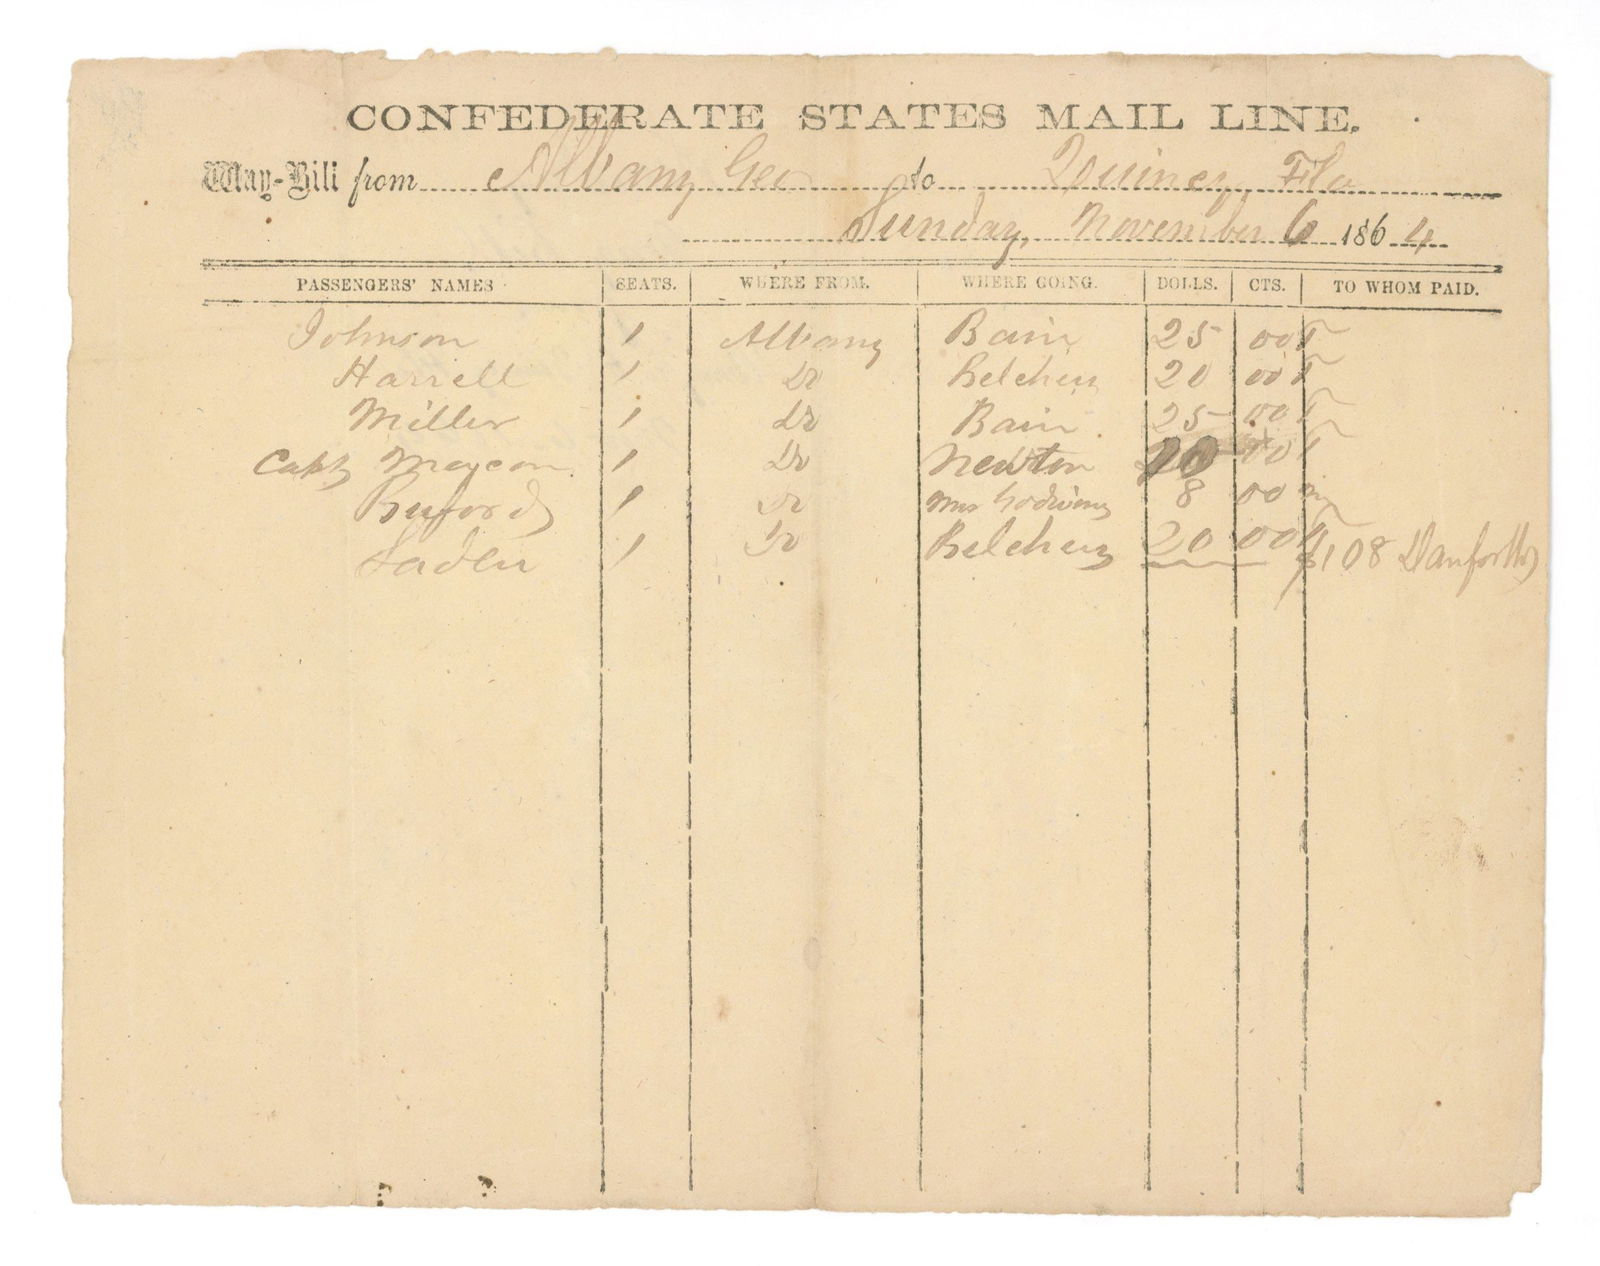 CONFEDERATE STATES MAIL LINE.
Way-Bill from Albany Geo to Quincy, Fla
Sunday, November 6 1864
PASSENGERS' NAMES SEATS. WHERE FROM. WHERE GOING. DOLLS. CTS. TO WHOM PAID.
Johnson 1 Albany Bain 25 00 T
Harrell 1 Do Belchers 20 00 T
Miller 1 Do Bain 25 00 T
Capt 1 Do Newton 00 T
Buford 1 Do Mrs 8 00
Laden 1 Do Belchers 20 00 T
$108 Danforth